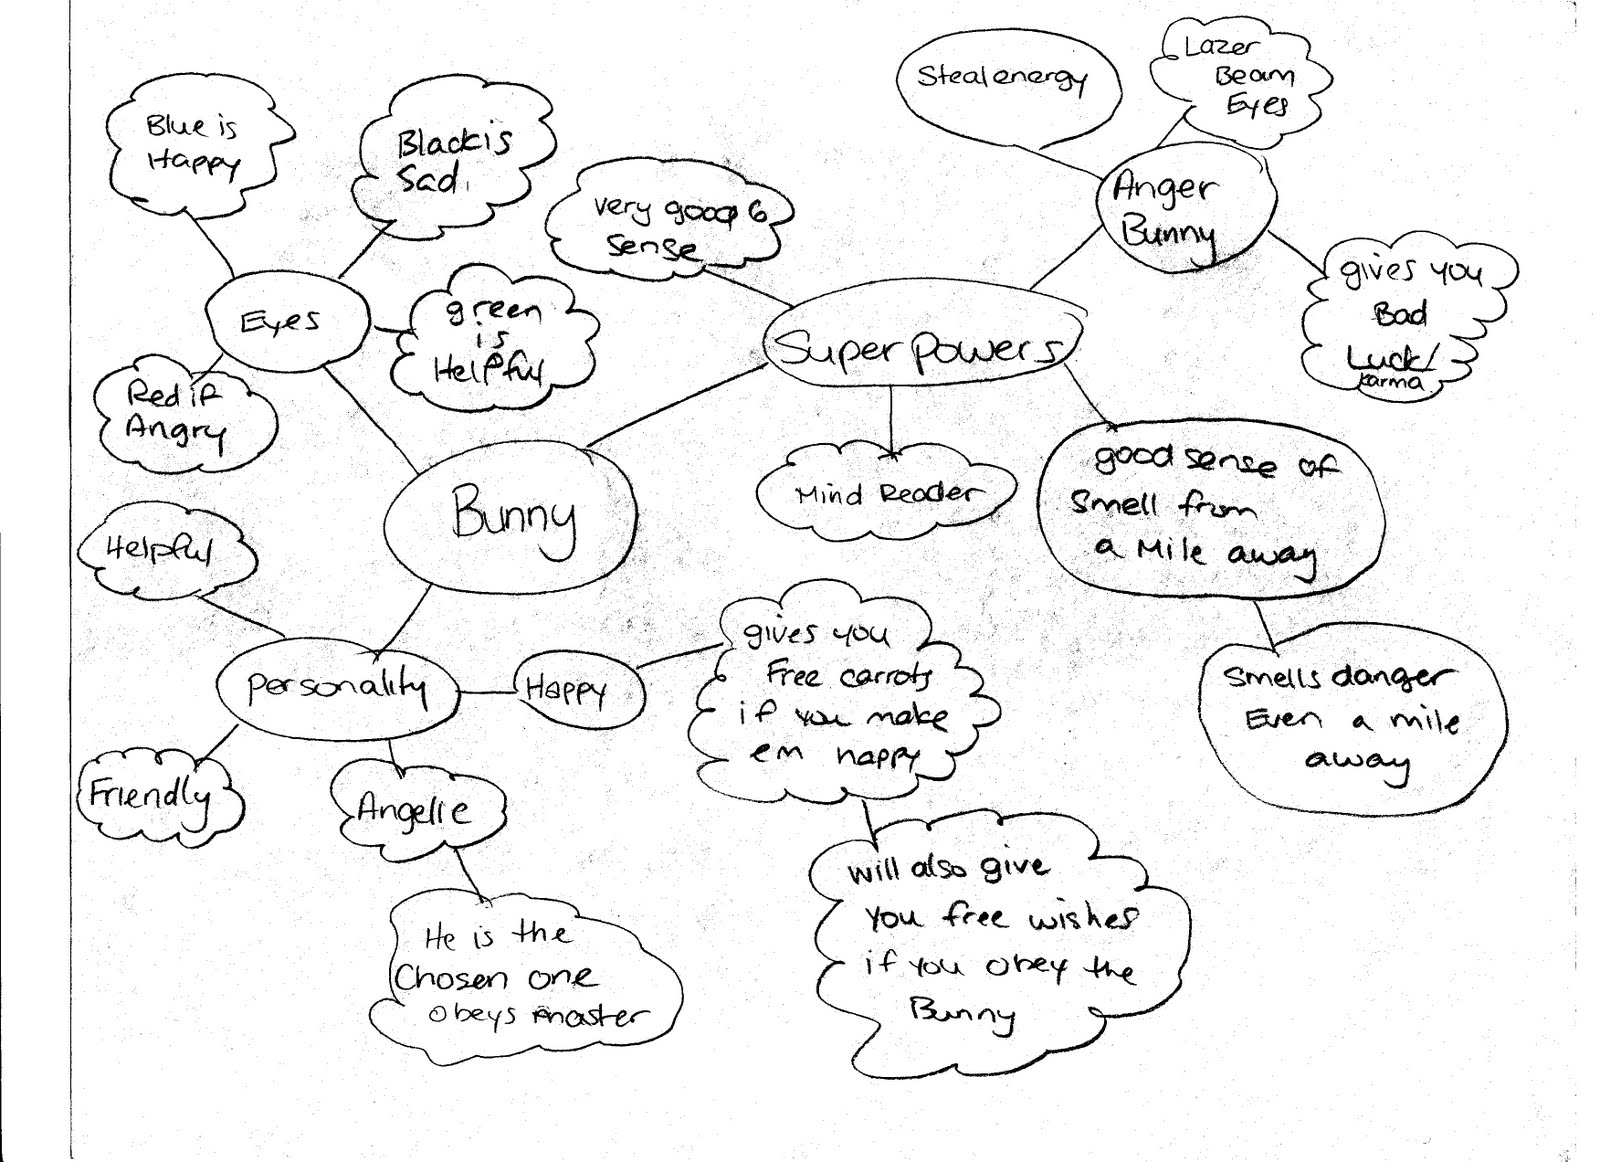 Steal energy
Lazer
Beam
Eyes
Blue is
Happy
Black is
Sad.
very good 6
sense
Anger
Bunny
gives you
Bad
Luck/
karma
Eyes
green
is
Helpful
Super Powers
Red if
Angry
Bunny
Mind Reader
good sense of
Smell from
a Mile away
Helpful
personality
Happy
gives you
Free carrots
if you make
em happy
Smells danger
Even a mile
away
Friendly
Angelic
will also give
you free wishes
if you obey the
Bunny
He is the
Chosen one
obeys master